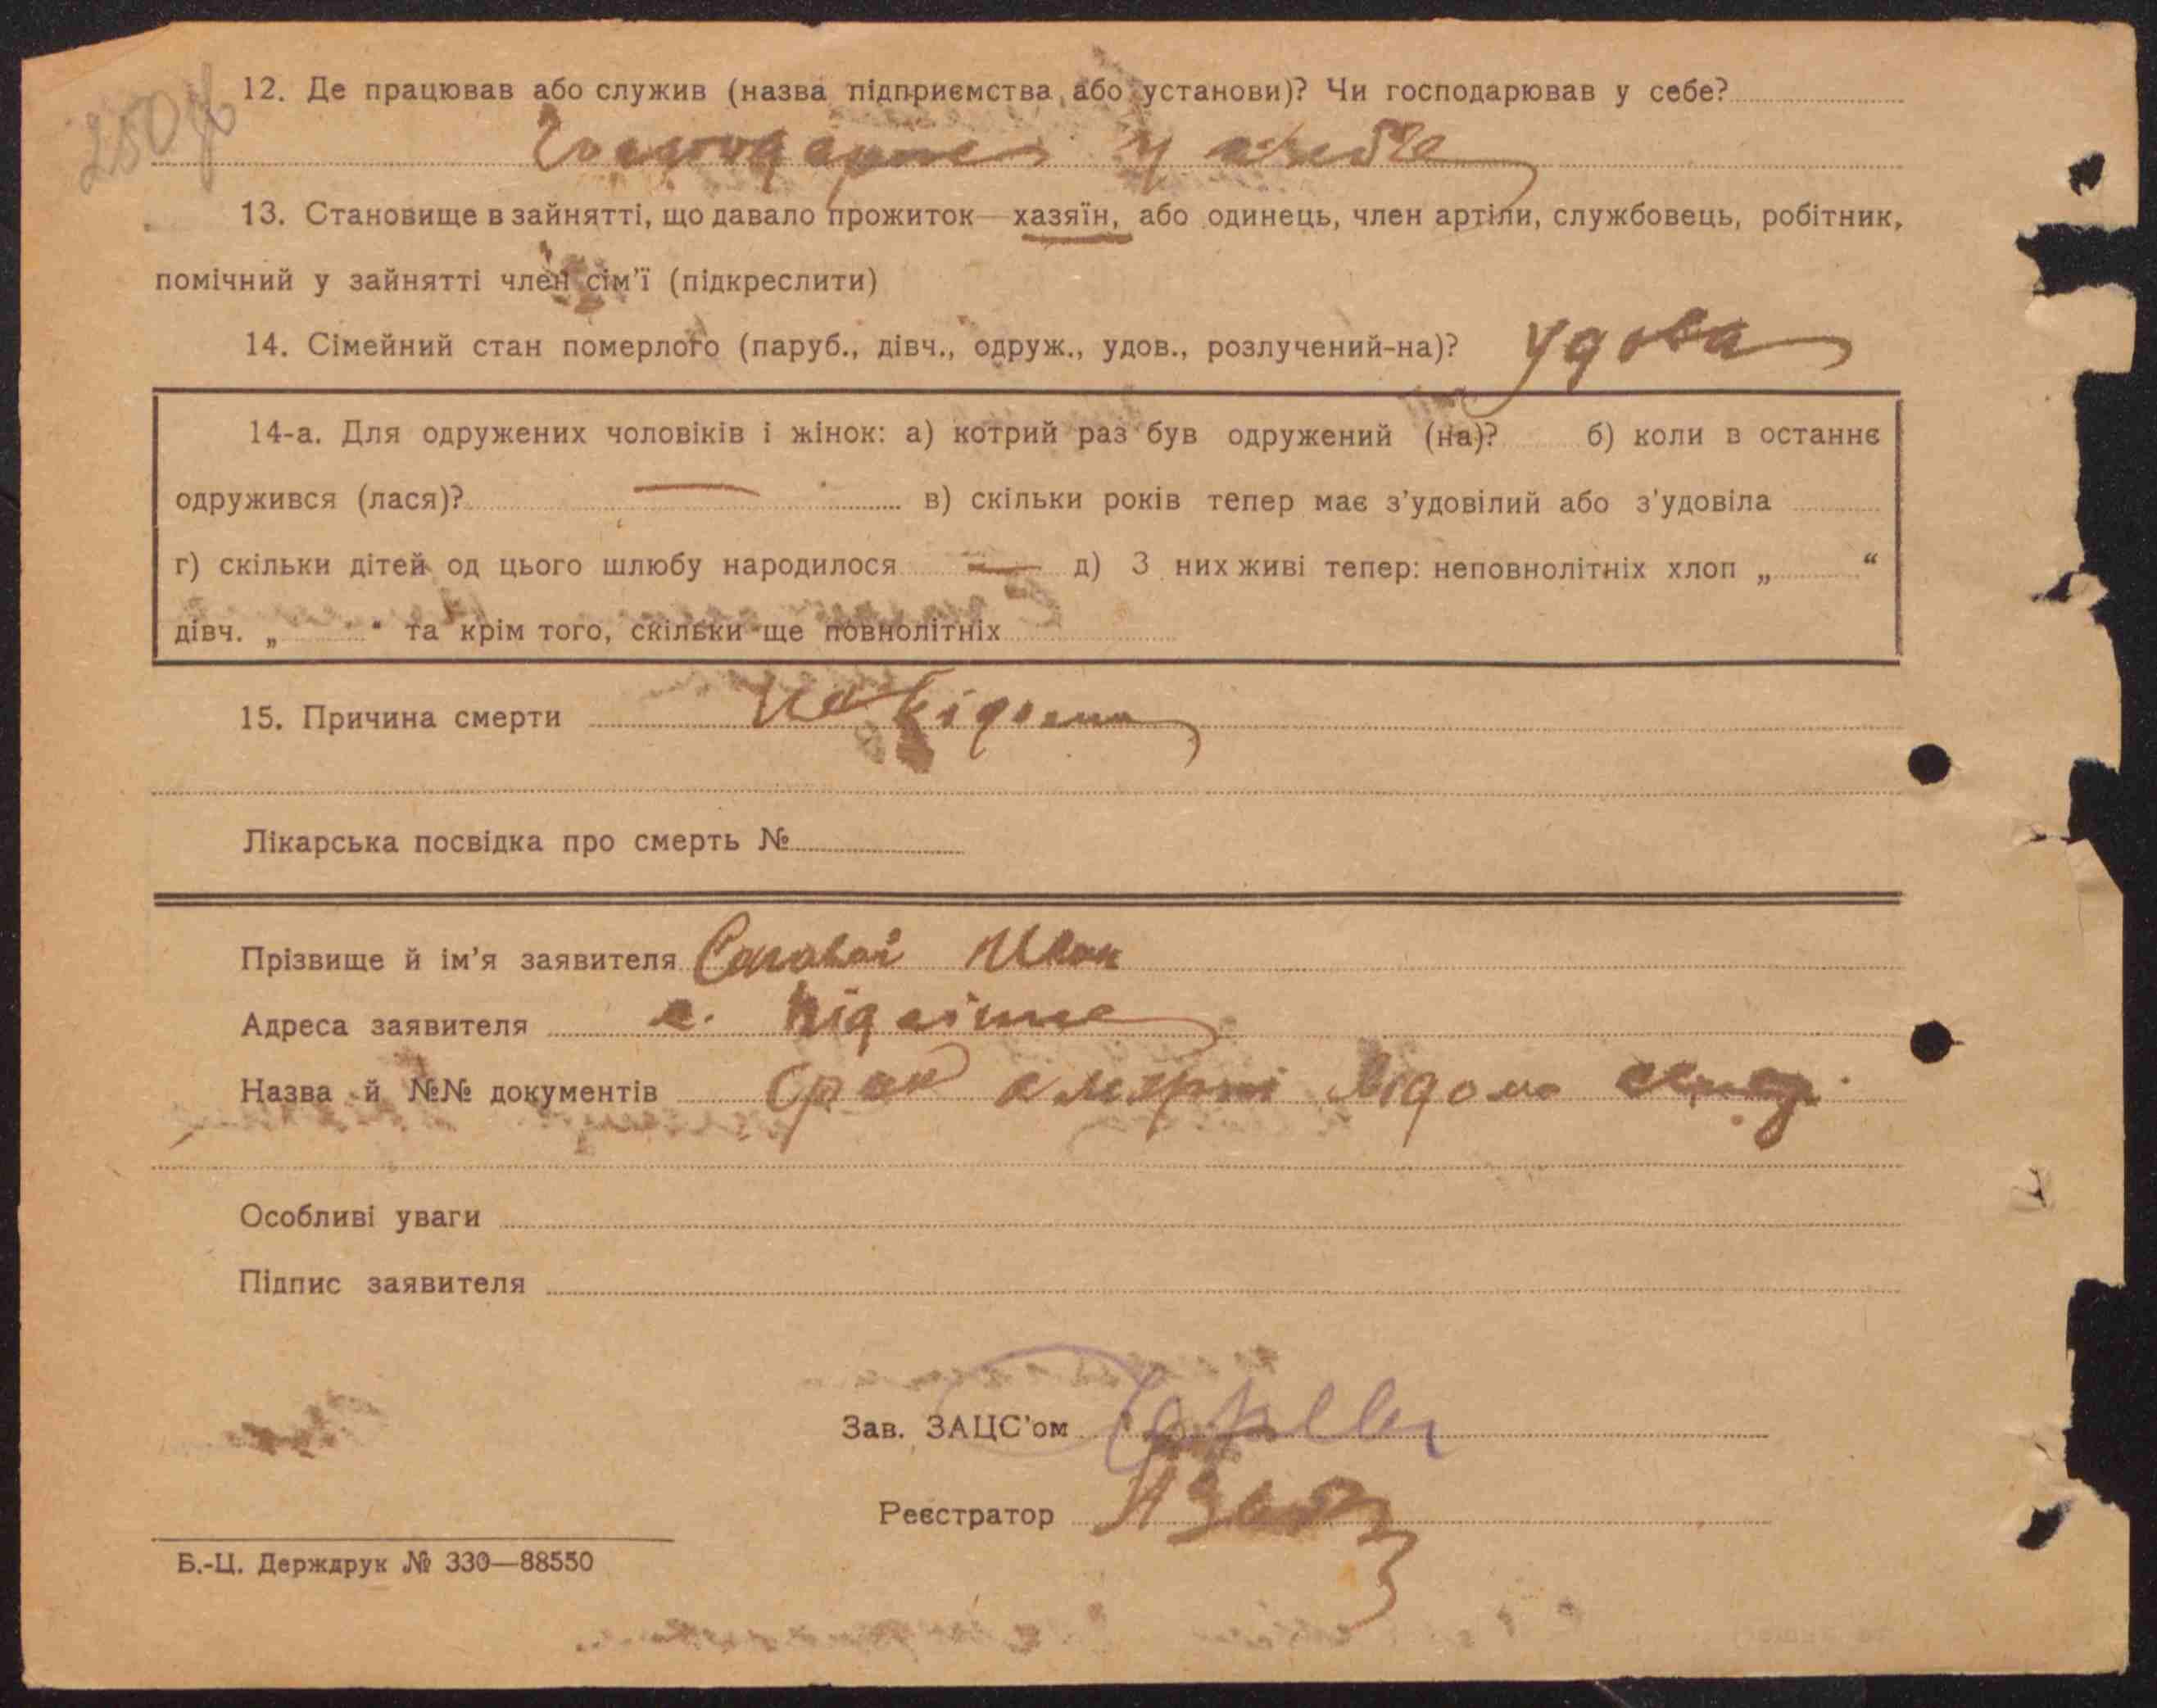 250
12. Де працював або служив (назва підприємства або установи)? Чи господарював у себе?
Господарює у себе
13. Становище в зайнятті, що давало прожиток—хазяїн, або одинець, член артіли, службовець, робітник,
помічний у зайнятті член сім'ї (підкреслити)
14. Сімейний стан померлого (паруб., дівч., одруж., удов., розлучений-на)? Удова
14-а. Для одружених чоловіків і жінок: а) котрий раз був одружений (на)? б) коли в останнє
одружився (лася)? — в) скільки років тепер має з'удовілий або з'удовіла
г) скільки дітей од цього шлюбу народилося — д) З них живі тепер: неповнолітніх хлоп „ “
дівч. „ “ та крім того, скільки ще повнолітніх
15. Причина смерти Невідома
Лікарська посвідка про смерть №
Прізвище й ім'я заявителя Іван
Адреса заявителя с.
Назва й №№ документів смерті відомо
Особливі уваги
Підпис заявителя
Зав. ЗАЦС'ом
Реєстратор
Б.-Ц. Держдрук № 330—88550